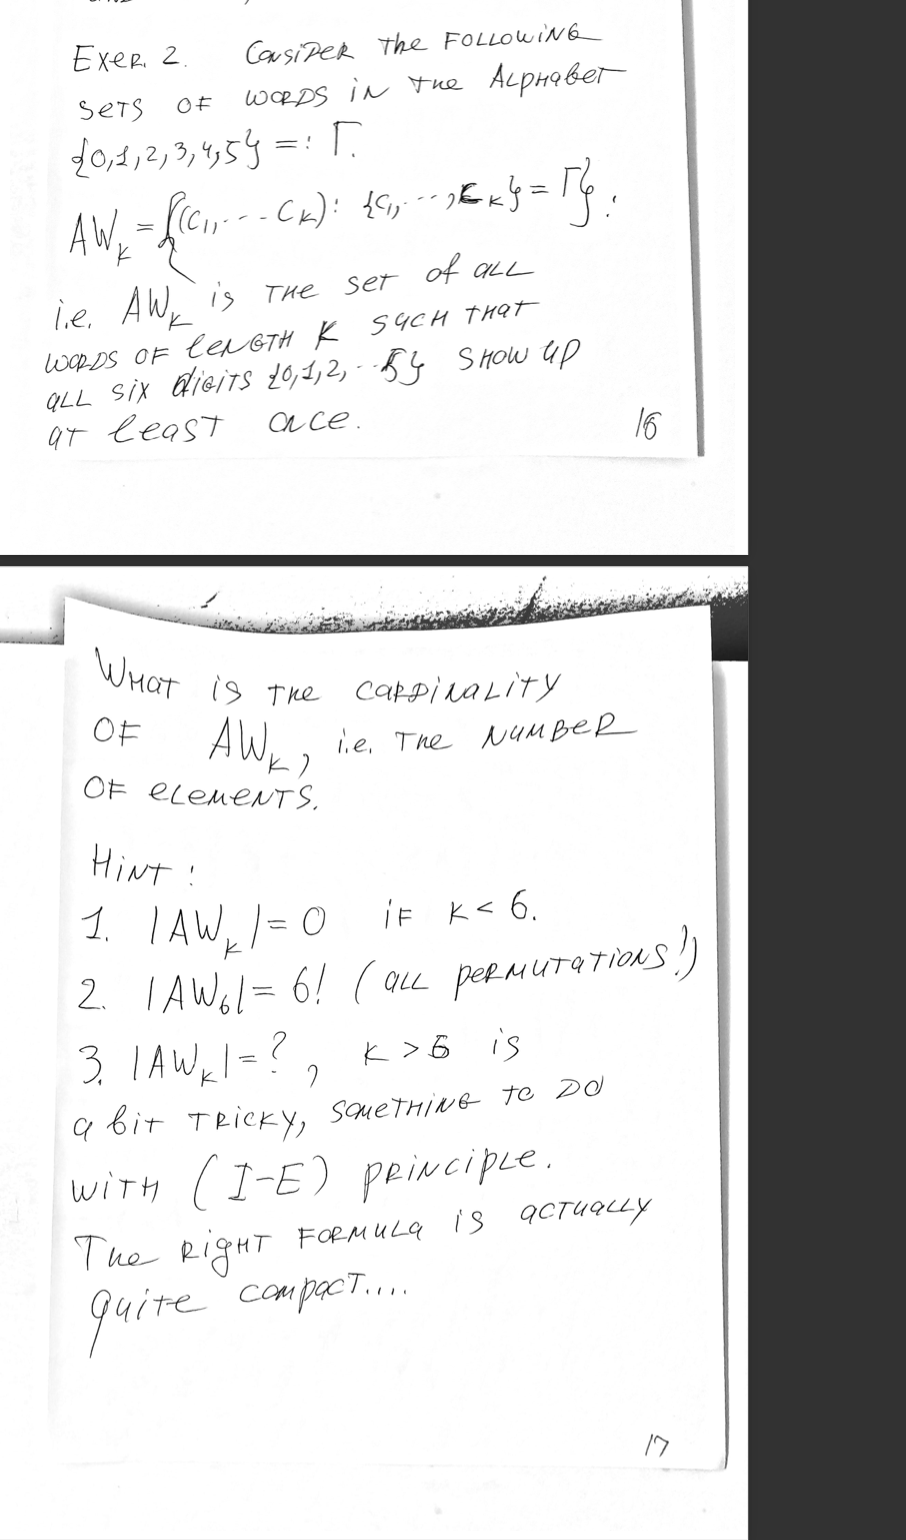 Exer. 2. Consider the following
sets of words in the Alphabet
{0,1,2,3,4,5} =: Γ.
AW_k = {(c_1, ... c_k): {c_1, ..., c_k} = Γ}.
i.e. AW_k is the set of all
words of length k such that
all six digits {0,1,2,..5} show up
at least once.
16
What is the cardinality
of AW_k, i.e. the number
of elements.
Hint:
1. |AW_k| = 0 if k < 6.
2. |AW_6| = 6! (all permutations!)
3. |AW_k| = ?, k > 6 is
a bit tricky, something to do
with (I-E) principle.
The right formula is actually
quite compact....
17